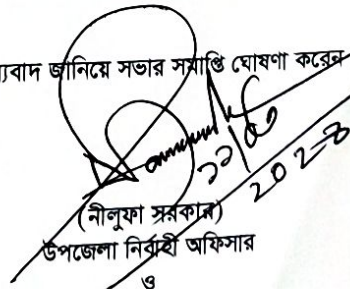 ্যবাদ জানিয়ে সভার সমাপ্তি ঘোষণা করেন
২০২৪
(নীলুফা সরকার)
উপজেলা নির্বাহী অফিসার
ও